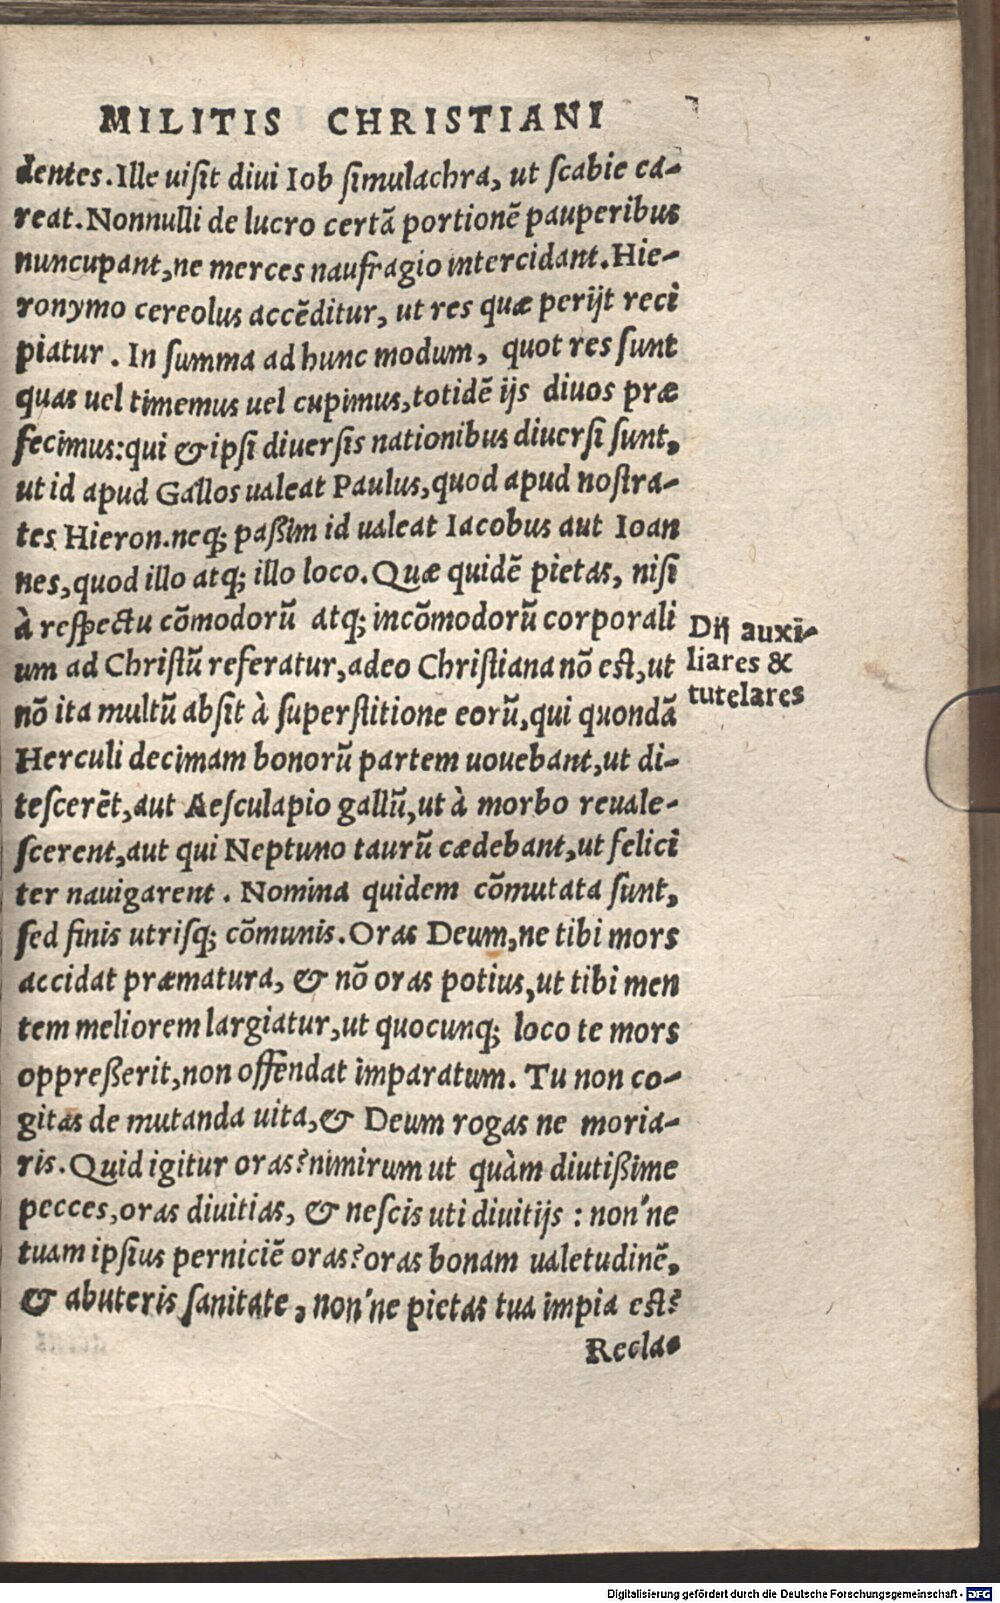 MILITIS CHRISTIANI
dentes. Ille uisit diui Iob simulachra, ut scabie ca-
reat. Nonnulli de lucro certā portionē pauperibus
nuncupant, ne merces naufragio intercidant. Hie-
ronymo cereolus accēditur, ut res quæ perijt reci
piatur. In summa ad hunc modum, quot res sunt
quas uel timemus uel cupimus, totidē ijs diuos præ
fecimus: qui & ipsi diuersis nationibus diuersi sunt,
ut id apud Gallos ualeat Paulus, quod apud nostra-
tes Hieron. neq; paßim id ualeat Iacobus aut Ioan
nes, quod illo atq; illo loco. Quæ quidē pietas, nisi
à respectu cōmodorū atq; incōmodorū corporali
um ad Christū referatur, adeo Christiana nō est, ut
nō ita multū absit à superstitione eorū, qui quondā
Herculi decimam bonorū partem uouebant, ut di-
tescerēt, aut Aesculapio gallū, ut à morbo reuale-
scerent, aut qui Neptuno taurū cædebant, ut felici
ter nauigarent. Nomina quidem cōmutata sunt,
sed finis utrisq; cōmunis. Oras Deum, ne tibi mors
accidat præmatura, & nō oras potius, ut tibi men
tem meliorem largiatur, ut quocunq; loco te mors
oppreßerit, non offendat imparatum. Tu non co-
gitas de mutanda uita, & Deum rogas ne moria-
ris. Quid igitur oras? nimirum ut quàm diutißime
pecces, oras diuitias, & nescis uti diuitijs: non'ne
tuam ipsius perniciē oras? oras bonam ualetudinē,
& abuteris sanitate, non'ne pietas tua impia est?
Recla-
Dij auxi-
liares &
tutelares
Digitalisierung gefördert durch die Deutsche Forschungsgemeinschaft - DFG